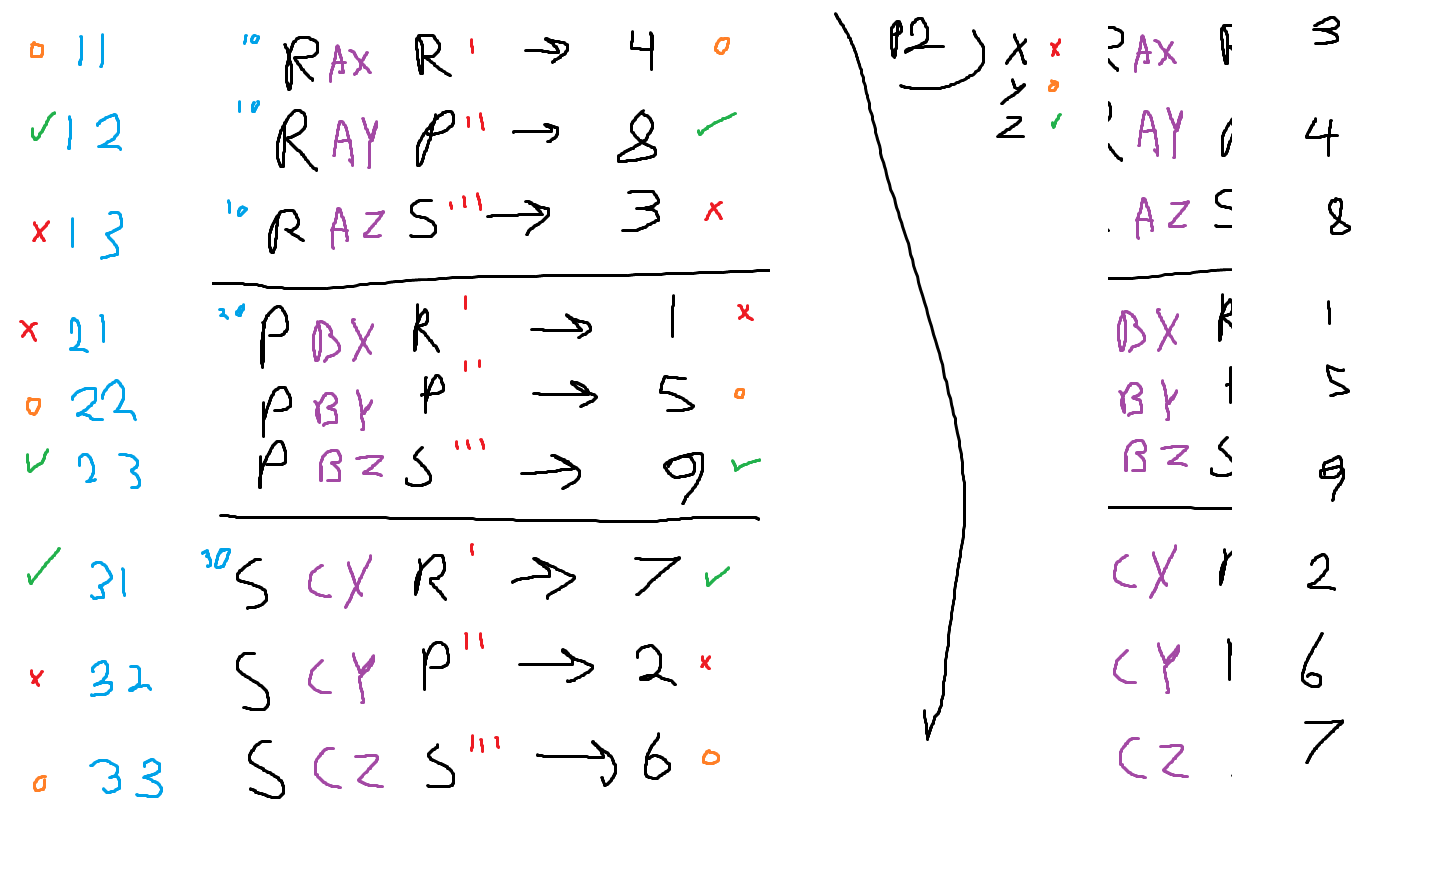 o 11 10 R AX R ' → 4 o
✓ 12 10 R AY P '' → 8 ✓
x 13 10 R AZ S ''' → 3 x
x 21 20 P BX R ' → 1 x
o 22 P BY P '' → 5 o
✓ 23 P BZ S ''' → 9 ✓
✓ 31 30 S CX R ' → 7 ✓
x 32 S CY P '' → 2 x
o 33 S CZ S ''' → 6 o
P2
X x
Y o
Z ✓
AX 3
AY 4
AZ S 8
BX R 1
BY 5
BZ S 9
CX 2
CY 6
CZ 7